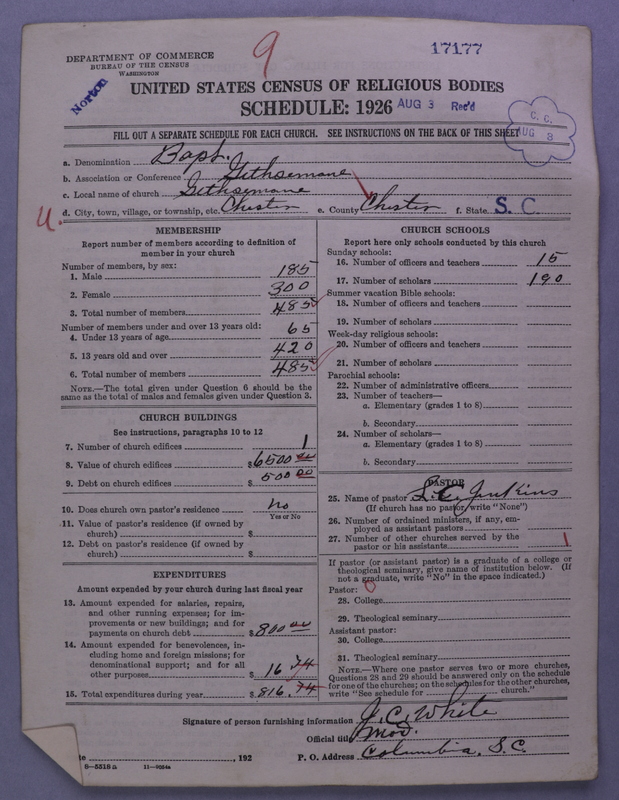 9
17177
DEPARTMENT OF COMMERCE
BUREAU OF THE CENSUS
WASHINGTON
Norton
UNITED STATES CENSUS OF RELIGIOUS BODIES
SCHEDULE: 1926 AUG 3 Rec'd
C. C.
AUG 3
FILL OUT A SEPARATE SCHEDULE FOR EACH CHURCH. SEE INSTRUCTIONS ON THE BACK OF THIS SHEET
a. Denomination Bapt.
b. Association or Conference Gethsemane
c. Local name of church Gethsemane
U. d. City, town, village, or township, etc. Chester e. County Chester f. State S. C.
MEMBERSHIP
Report number of members according to definition of
member in your church
Number of members, by sex:
1. Male 185
2. Female 300
3. Total number of members 485
Number of members under and over 13 years old:
4. Under 13 years of age 65
5. 13 years old and over 420
6. Total number of members 485
NOTE.—The total given under Question 6 should be the
same as the total of males and females given under Question 3.
CHURCH BUILDINGS
See instructions, paragraphs 10 to 12
7. Number of church edifices 1
8. Value of church edifices $6500 00
9. Debt on church edifices $ 500 00
10. Does church own pastor's residence no
Yes or No
11. Value of pastor's residence (if owned by
church) $
12. Debt on pastor's residence (if owned by
church) $
EXPENDITURES
Amount expended by your church during last fiscal year
13. Amount expended for salaries, repairs,
and other running expenses; for im-
provements or new buildings; and for
payments on church debt $800 00
14. Amount expended for benevolences, in-
cluding home and foreign missions; for
denominational support; and for all
other purposes $ 16 74
15. Total expenditures during year $816.74
CHURCH SCHOOLS
Report here only schools conducted by this church
Sunday schools:
16. Number of officers and teachers 15
17. Number of scholars 190
Summer vacation Bible schools:
18. Number of officers and teachers
19. Number of scholars
Week-day religious schools:
20. Number of officers and teachers
21. Number of scholars
Parochial schools:
22. Number of administrative officers
23. Number of teachers—
a. Elementary (grades 1 to 8)
b. Secondary
24. Number of scholars—
a. Elementary (grades 1 to 8)
b. Secondary
PASTOR
25. Name of pastor L. C. Jenkins
(If church has no pastor, write "None")
26. Number of ordained ministers, if any, em-
ployed as assistant pastors
27. Number of other churches served by the
pastor or his assistants 1
If pastor (or assistant pastor) is a graduate of a college or
theological seminary, give name of institution below. (If
not a graduate, write "No" in the space indicated.)
Pastor: 0
28. College
29. Theological seminary
Assistant pastor:
30. College
31. Theological seminary
NOTE.—Where one pastor serves two or more churches,
Questions 28 and 29 should be answered only on the schedule
for one of the churches; on the schedules for the other churches,
write "See schedule for church."
Signature of person furnishing information J. C. White
Official title Mod.
te , 192 P. O. Address Columbia, S. C.
8—5318a 11—9054a